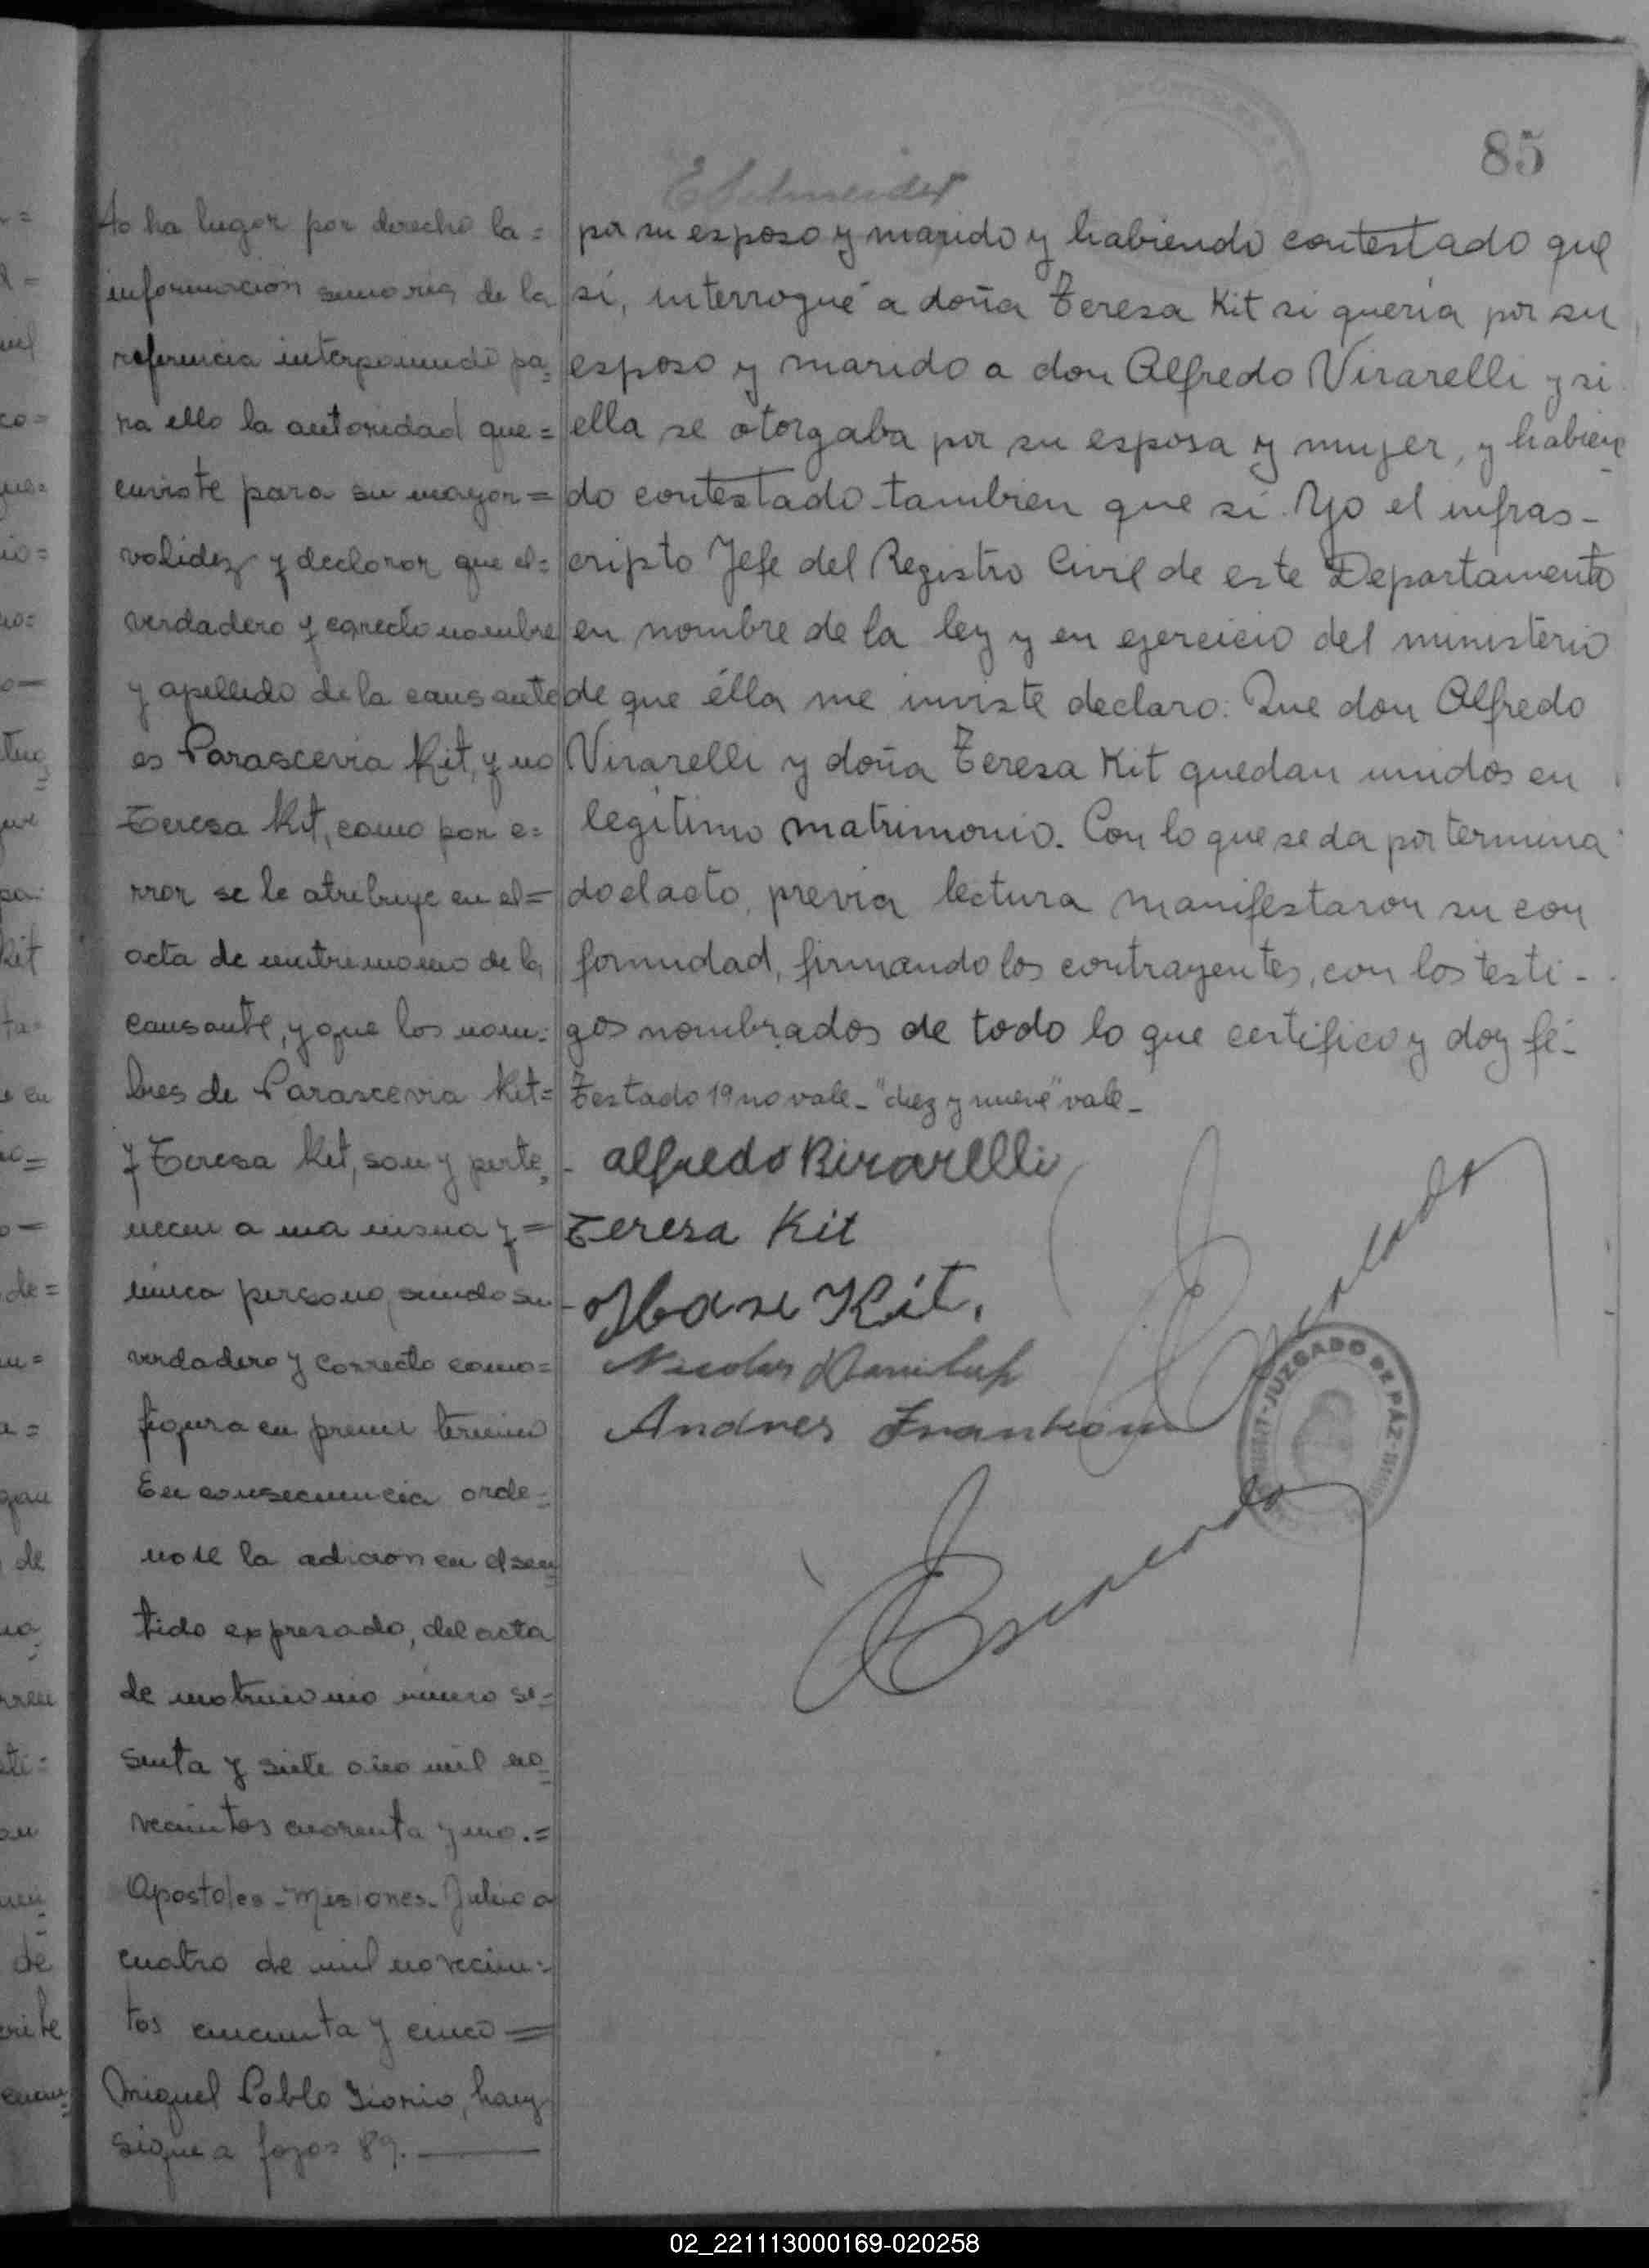 85
to ha lugar por derecho la=
informacion sumaria de la
referencia interponiendo pa=
ra ello la autoridad que=
enviste para su mayor=
validez y declaror que el=
verdadero y correcto nombre
y apellido de la causante
es Parascevia Kit, y no
Teresa Kit, como por e=
rror se le atribuye en el=
acta de matrimonio de la
causante, y que los nom=
bres de Parascevia Kit=
y Teresa Kit, son y perte=
necen a una misma y=
unica persona, siendo su
verdadero y correcto como=
figura en primer termino
En consecuencia orde=
nose la adicion en el sen=
tido expresado, del acta
de matrimonio número se=
senta y siete año mil no=
vecientos cuarenta y uno.=
Apostoles-Misiones-Julio a
cuatro de mil novecien=
tos cincuenta y cinco=
Miguel Pablo Iiorio, hay
sigue a fojas 89.
por su esposo y marido y habiendo contestado que
sí, interrogué a doña Teresa Kit si quería por su
esposo y marido a don Alfredo Virarelli y si
ella se otorgaba por su esposa y mujer, y habien
do contestado tambien que sí. Yo el infras-
cripto Jefe del Registro Civil de este Departamento
en nombre de la ley y en ejercicio del ministerio
de que élla me inviste declaro: Que don Alfredo
Virarelli y doña Teresa Kit quedan unidos en
legítimo matrimonio. Con lo que se da por termina
do el acto, previa lectura manifestaron su con
formidad, firmando los contrayentes, con los testi-
gos nombrados de todo lo que certifico y doy fé-
Testado 19 no vale- "diez y nueve" vale-
alfredo Birarelli
Teresa Kit
Kit.
Nicolas
Andres
JUZGADO DE PÁZ
02_221113000169-020258